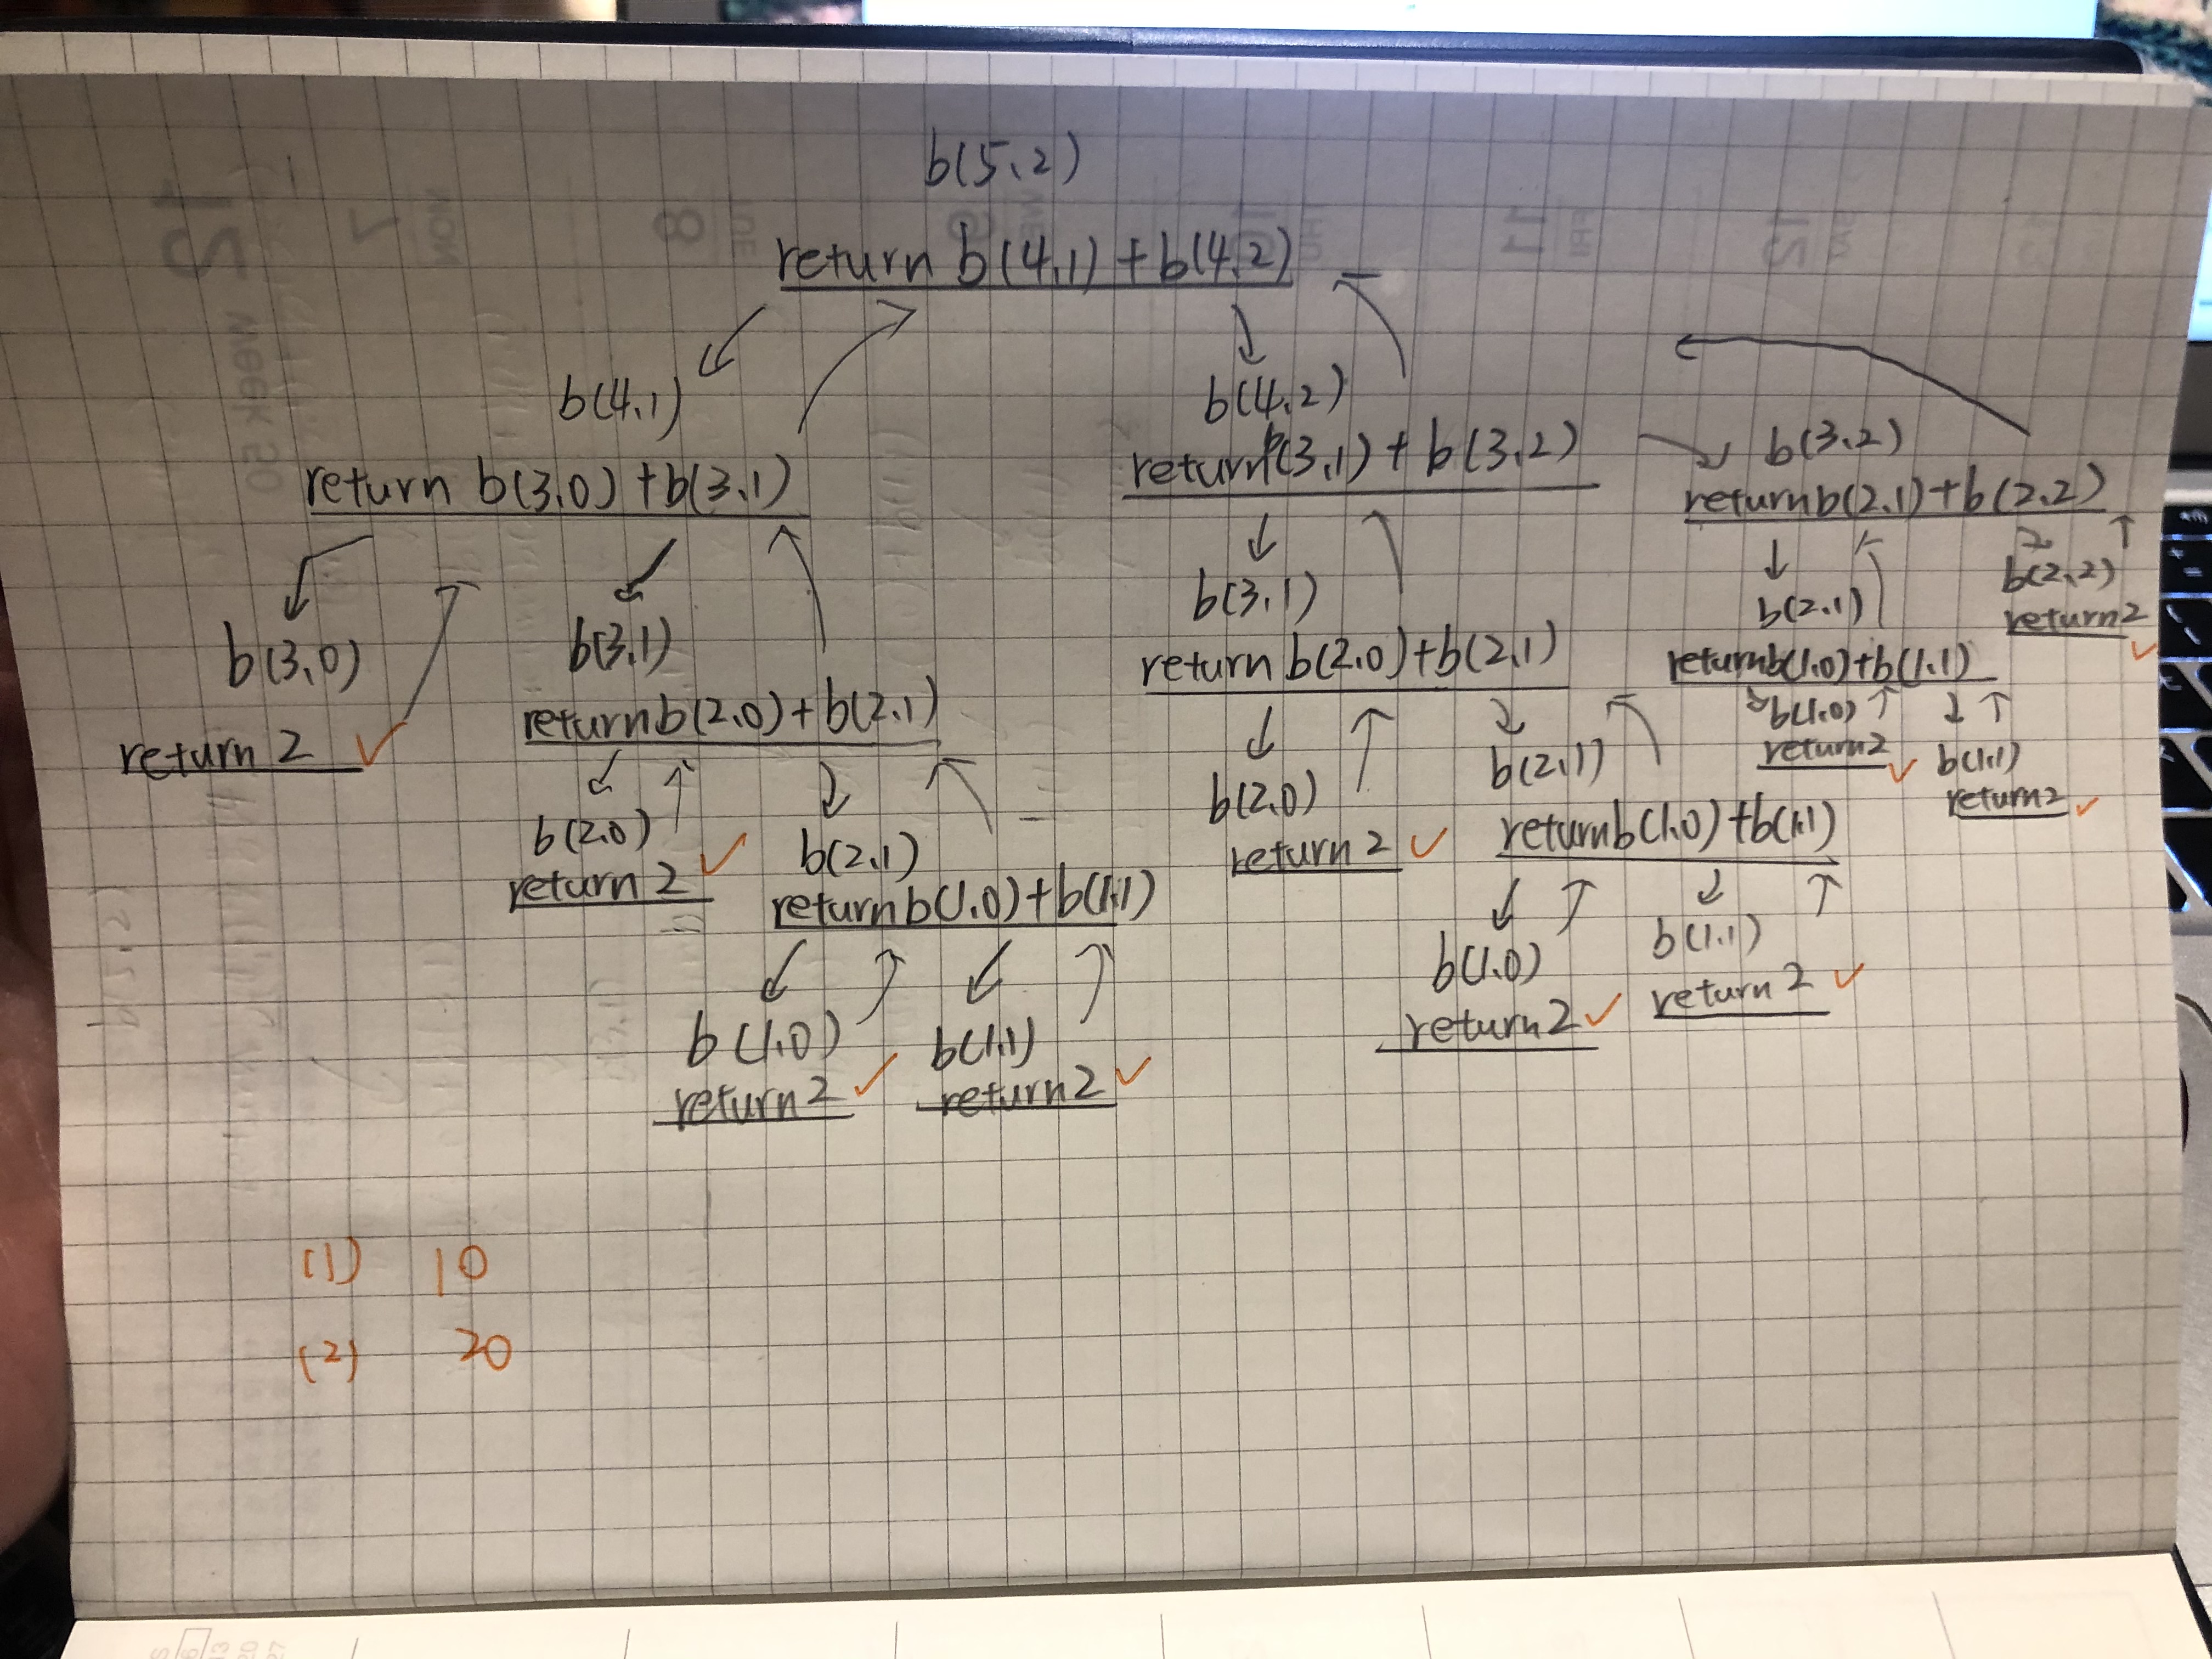 b(5,2)
return b(4,1) + b(4,2)
b(4,1)
return b(3,0) + b(3,1)
b(3,0)
return 2 ✓
b(3,1)
return b(2,0) + b(2,1)
b(2,0)
return 2 ✓
b(2,1)
return b(1,0) + b(1,1)
b(1,0)
return 2 ✓
b(1,1)
return 2 ✓
b(4,2)
return b(3,1) + b(3,2)
b(3,1)
return b(2,0) + b(2,1)
b(2,0)
return 2 ✓
b(2,1)
return b(1,0) + b(1,1)
b(1,0)
return 2 ✓
b(1,1)
return 2 ✓
b(3,2)
return b(2,1) + b(2,2)
b(2,1)
return b(1,0) + b(1,1)
b(1,0)
return 2 ✓
b(1,1)
return 2 ✓
b(2,2)
return 2 ✓
(1) 10
(2) 20
12 WEEK 50
7 MON
8 TUE
9
10
11 FRI
12
6 13 20 27